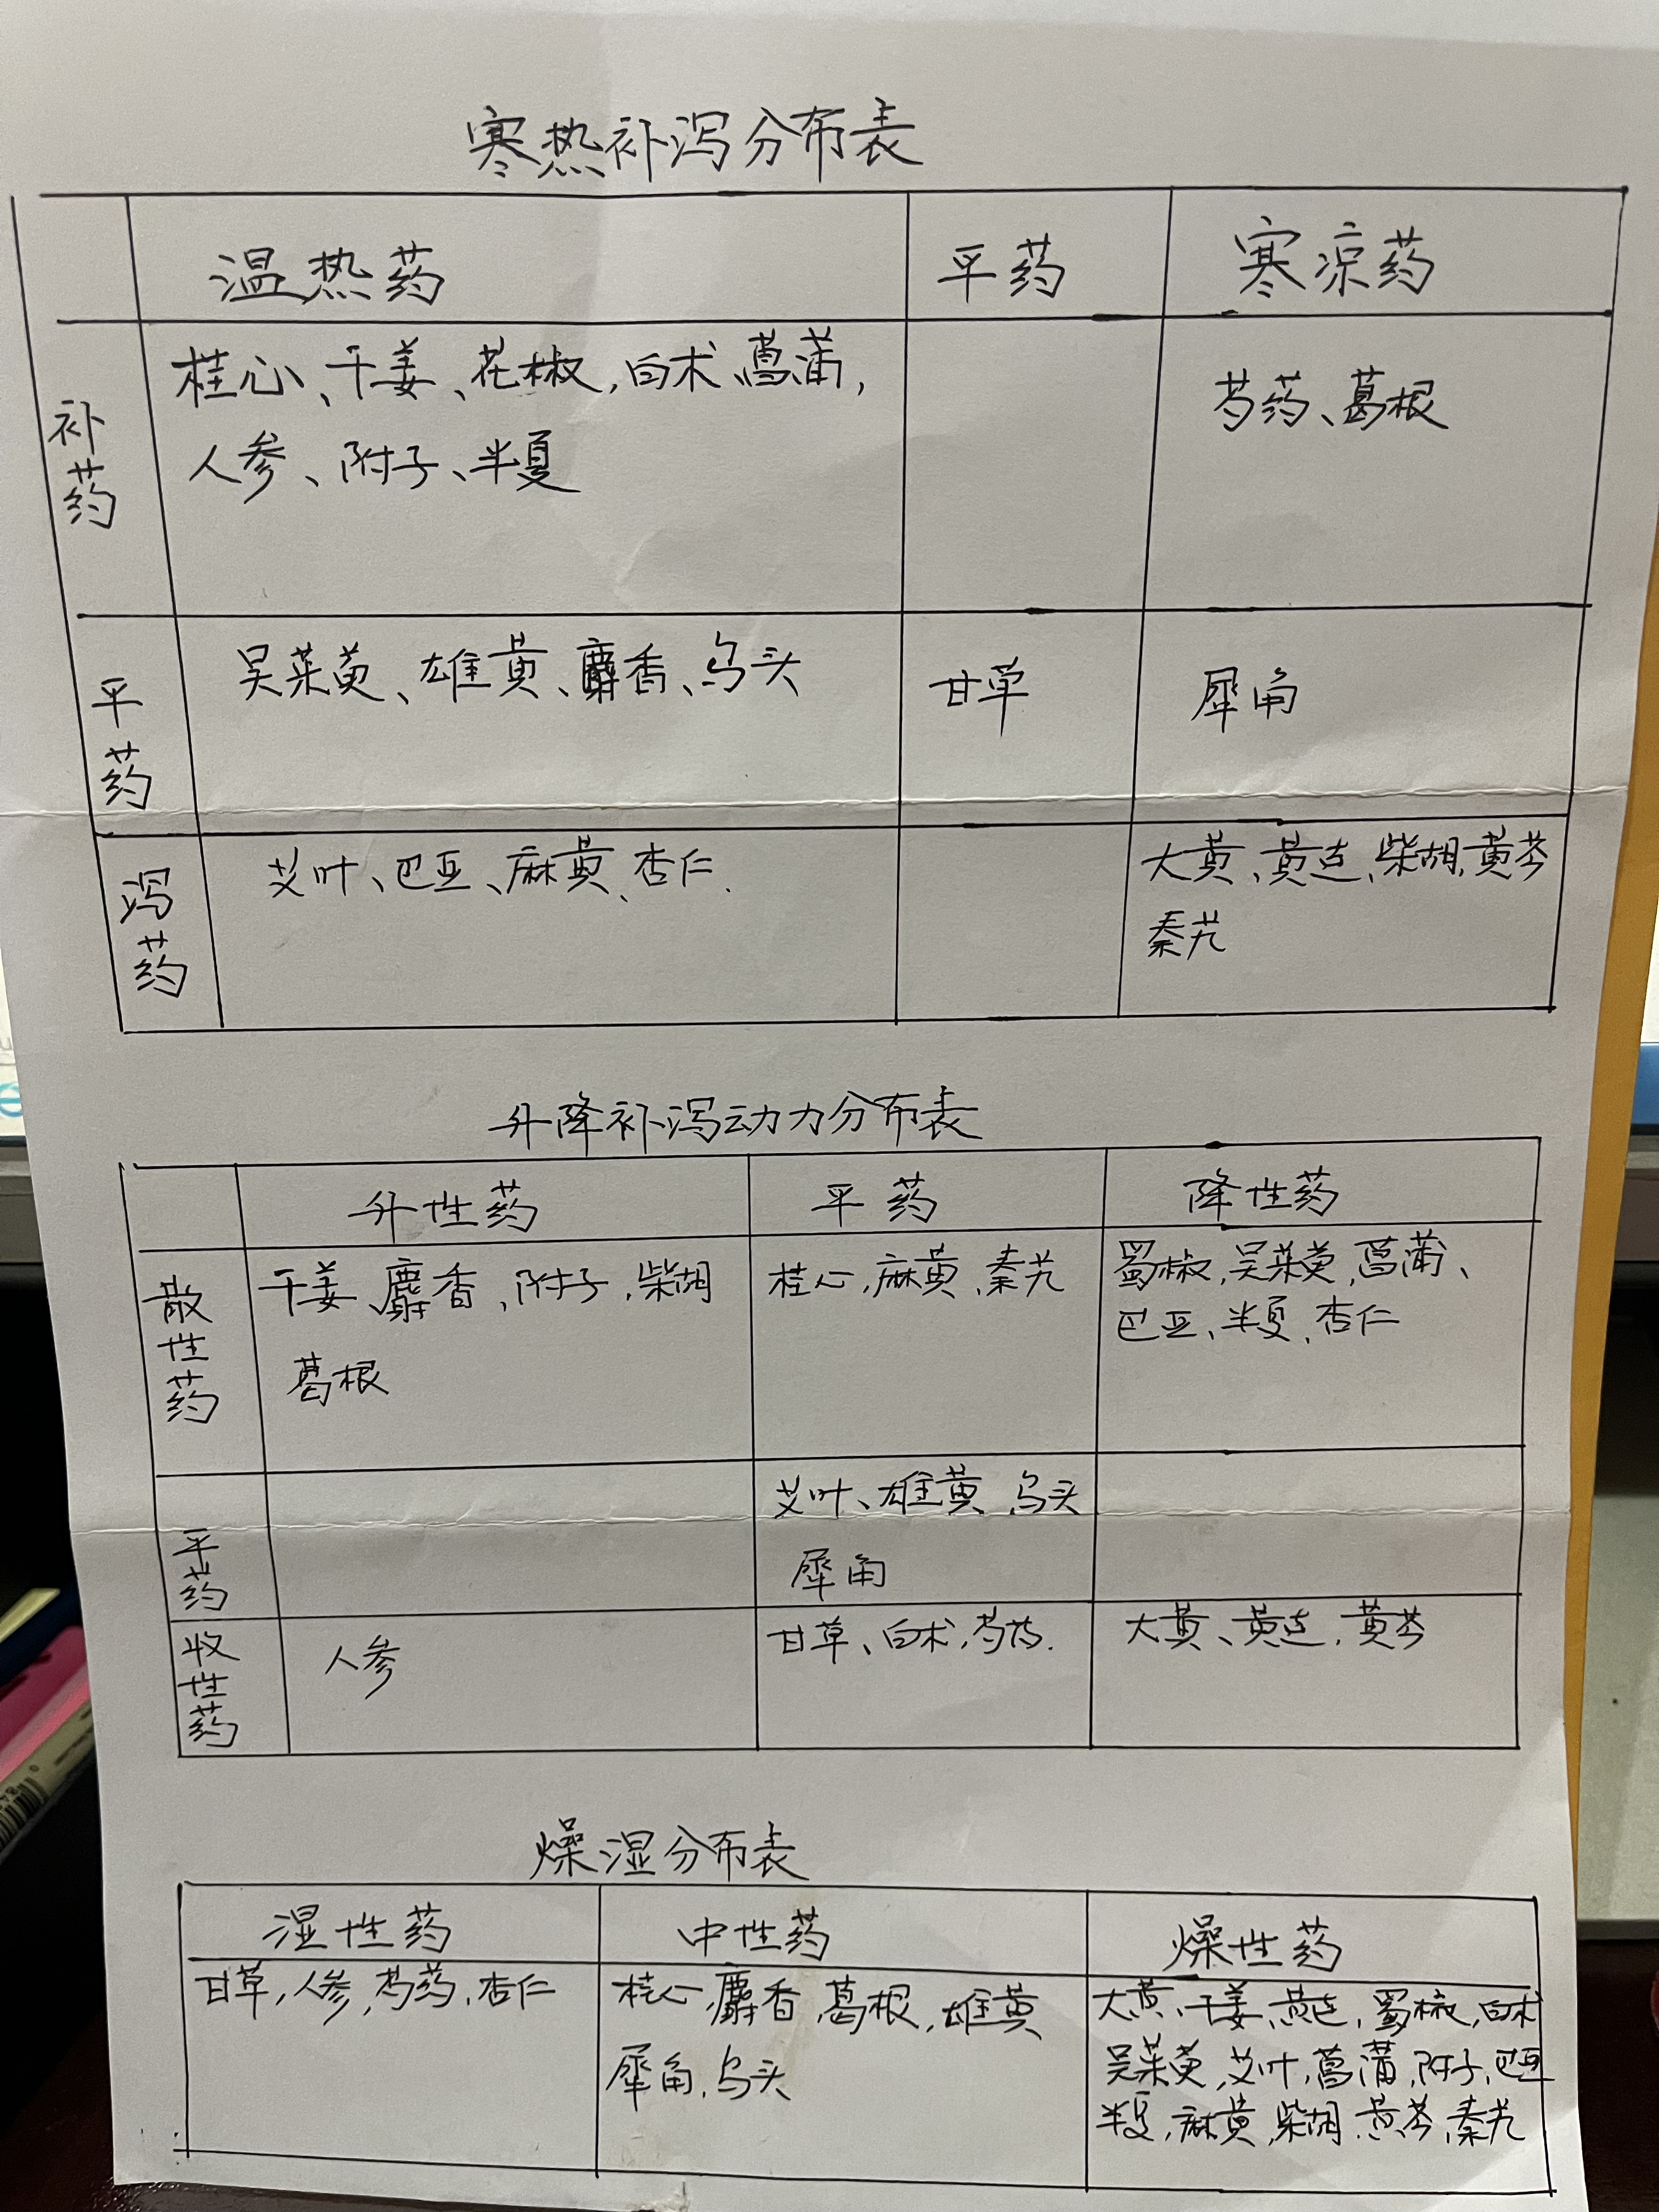 寒热补泻分布表
温热药 平药 寒凉药
补药 桂心、干姜、花椒,白术、菖蒲, 芍药、葛根
人参、附子、半夏
平药 吴茱萸、雄黄、麝香、乌头 甘草 犀角
泻药 艾叶、巴豆、麻黄、杏仁、 大黄、黄连、柴胡、黄芩
秦艽
升降补泻动力分布表
升性药 平药 降性药
散性药 干姜、麝香、附子,柴胡 桂心,麻黄、秦艽 蜀椒,吴茱萸,菖蒲、
葛根 巴豆、半夏、杏仁
平药 艾叶、雄黄 乌头
犀角
收性药 人参 甘草、白术,芍药. 大黄、黄连,黄芩
燥湿分布表
湿性药 中性药 燥性药
甘草,人参,芍药,杏仁 桂心,麝香,葛根,雄黄 大黄、干姜,黄连,蜀椒,白术
犀角,乌头 吴茱萸,艾叶,菖蒲,附子,巴豆
半夏,麻黄,柴胡 黄芩,秦艽